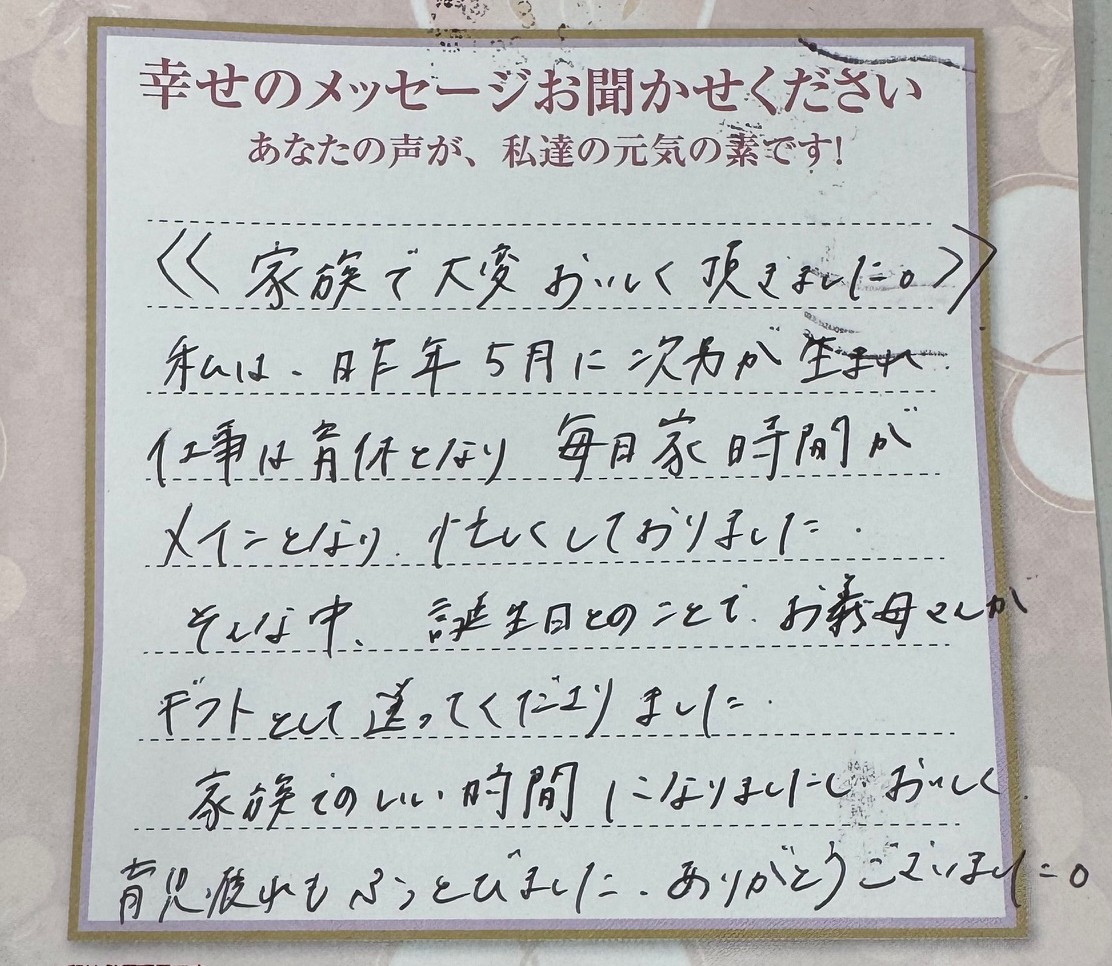 幸せのメッセージお聞かせください
あなたの声が、私達の元気の素です!
《家族で大変おいしく頂きました。》
私は、昨年5月に次男が生まれ
仕事は育休となり 毎日家時間が
メインとなり、忙しくしておりました.
そんな中、誕生日とのことで、お義母さんが
ギフトとして送ってくださりました.
家族でのいい時間になりましたし、おいしく、
育児疲れもふっとびました、ありがとうございました。